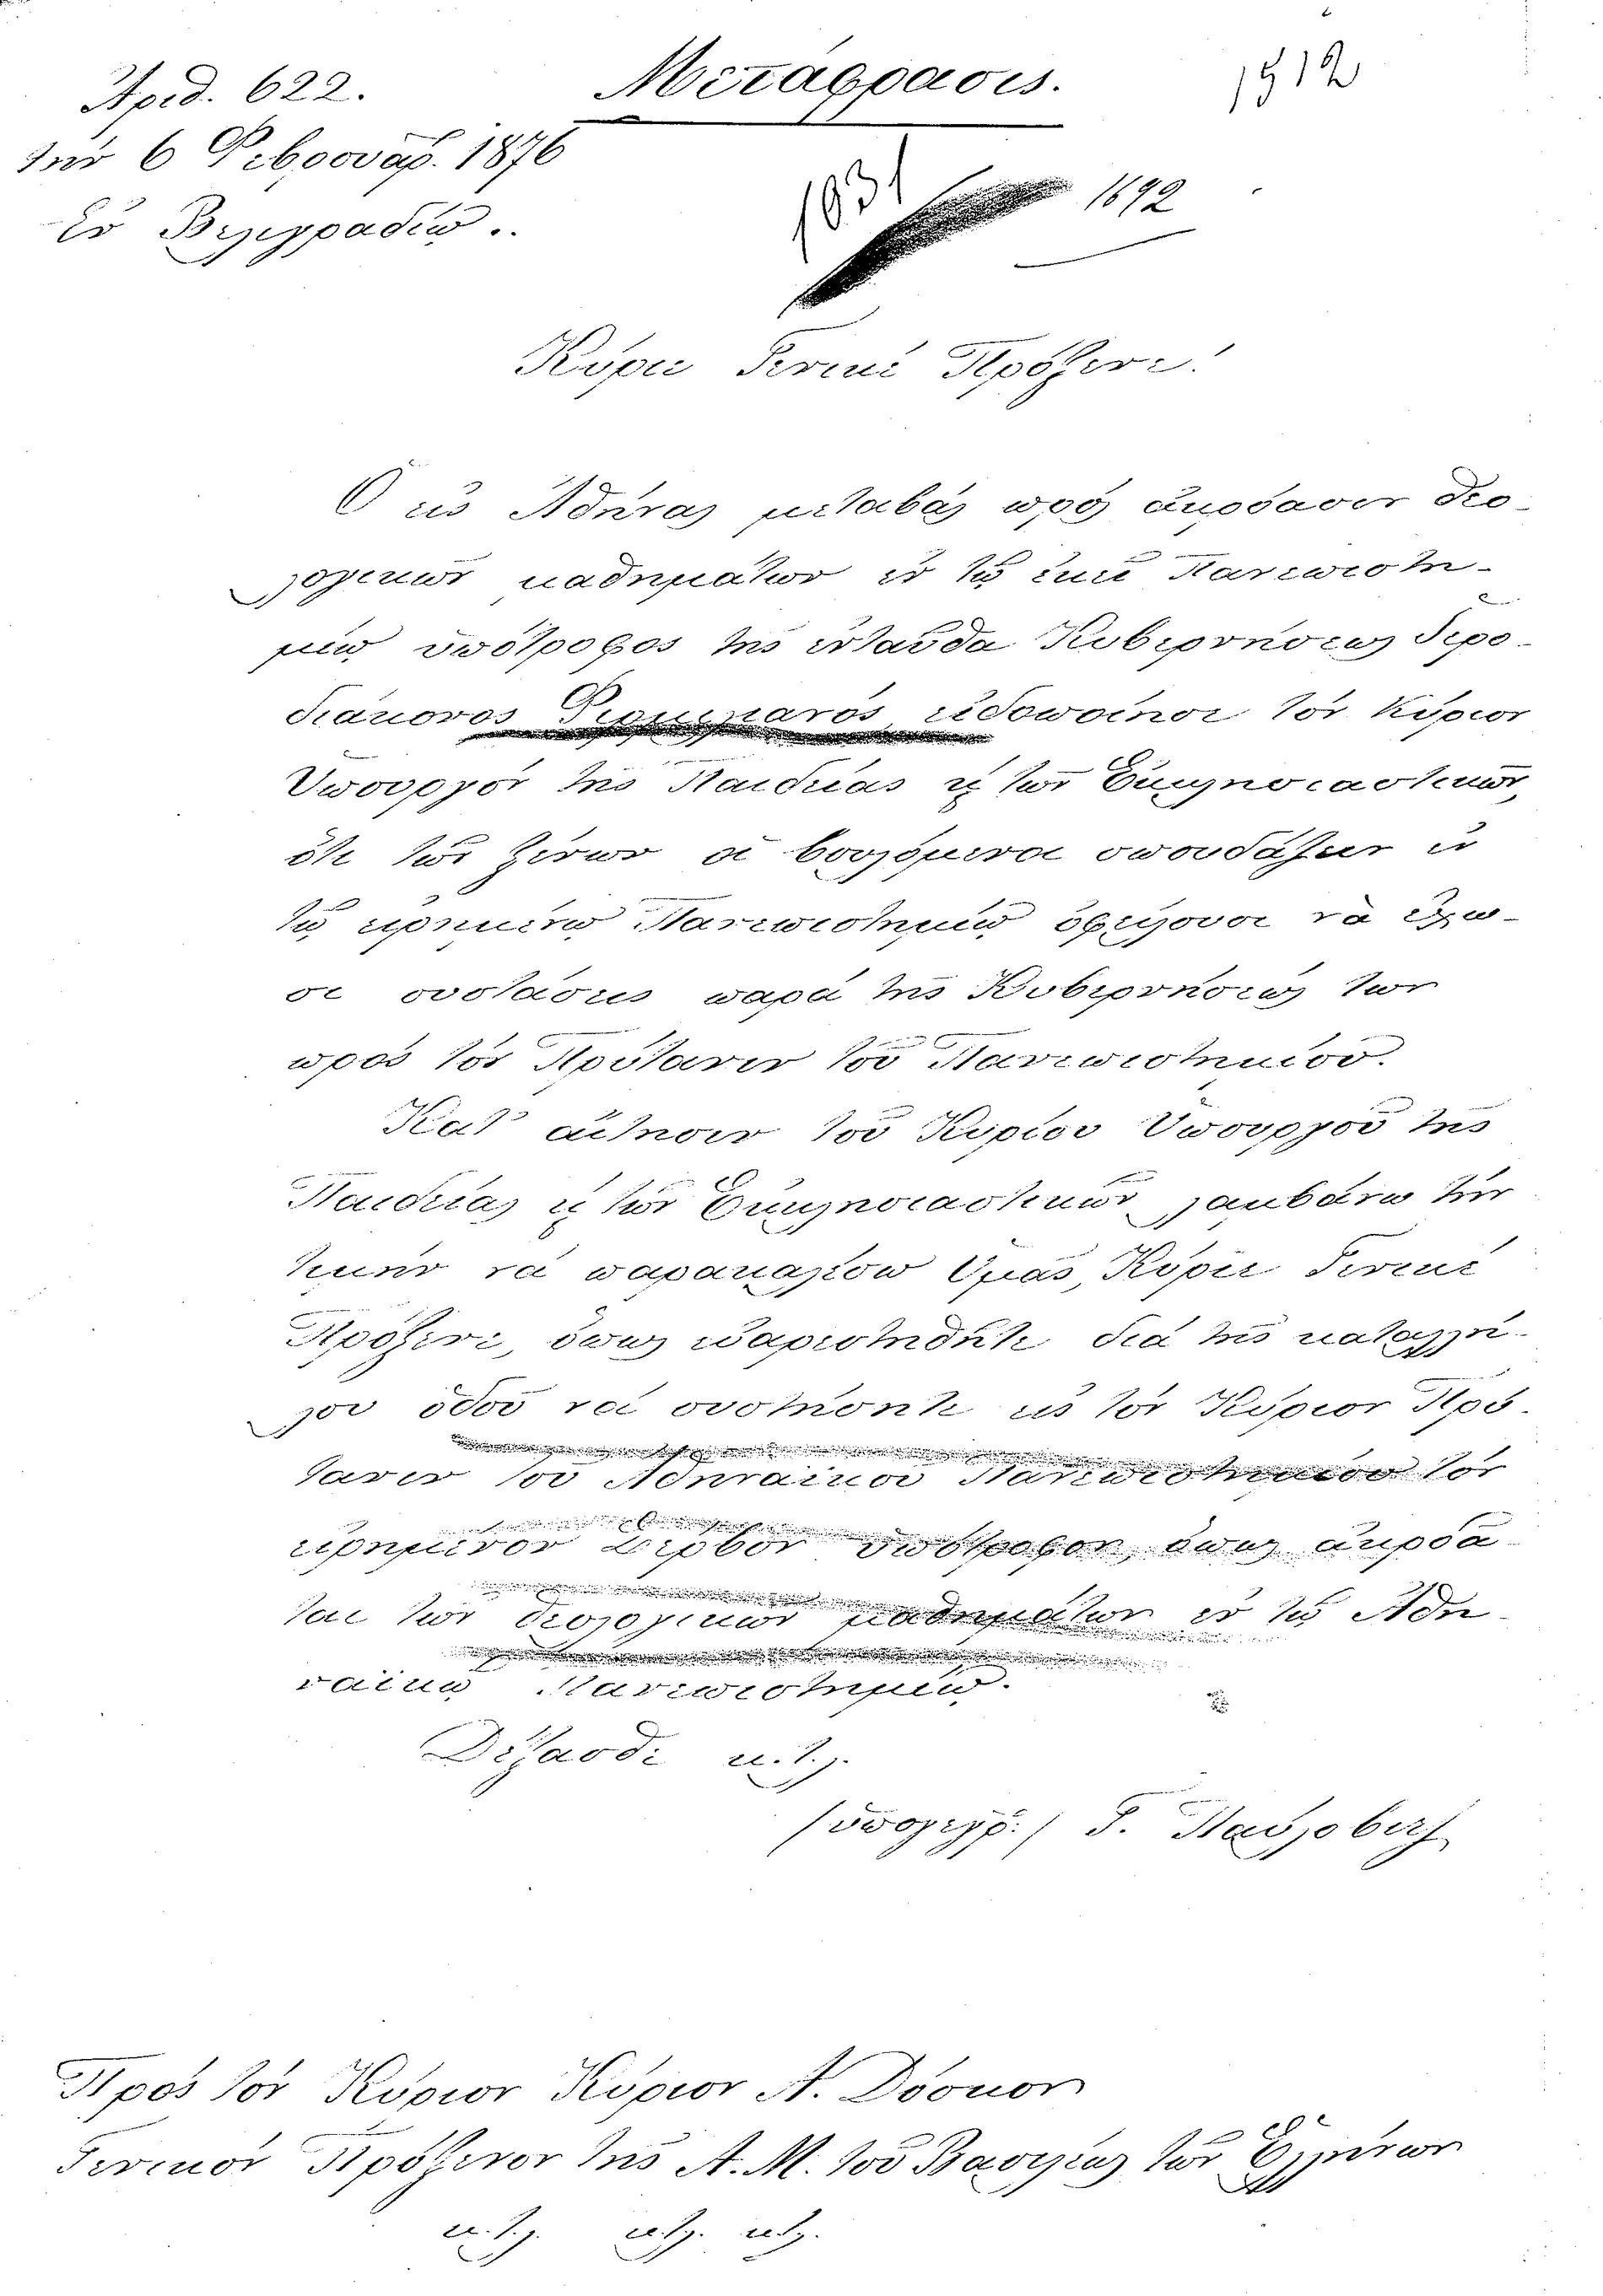 Μετάφρασις.
1512
Ἀριθ. 622.
τὴν 6 Φεβρουαρ. 1876
ἐν Βελιγραδίῳ.
1631
1692
Κύριε Γενικὲ Πρόξενε!
Ὁ εἰς Ἀθήνας μεταβὰς πρὸς ἀκρόασιν θεο-
λογικῶν μαθημάτων ἐν τῷ ἐκεῖ Πανεπιστη-
μίῳ ὑπότροφος τῆς ἐνταῦθα Κυβερνήσεως Ἱερο-
διάκονος Φιρμιλιανὸς εἰδοποίησε τὸν Κύριον
Ὑπουργὸν τῆς Παιδείας κ τῶν Ἐκκλησιαστικῶν,
ὅτι τῶν ξένων οἱ βουλόμενοι σπουδάζειν ἐν
τῷ εἰρημένῳ Πανεπιστημίῳ ὀφείλουσι νὰ ἔχω-
σι συστάσεις παρὰ τῆς Κυβερνήσεώς των
πρὸς τὸν Πρύτανιν τοῦ Πανεπιστημίου.
Κατ' αἴτησιν τοῦ Κυρίου Ὑπουργοῦ τῆς
Παιδείας κ τῶν Ἐκκλησιαστικῶν λαμβάνω τὴν
τιμὴν νὰ παρακαλέσω Ὑμᾶς, Κύριε Γενικὲ
Πρόξενε, ὅπως εὐαρεστηθῆτε διὰ τῆς καταλλή-
λου ὁδοῦ νὰ συστήσητε εἰς τὸν Κύριον Πρύ-
τανιν τοῦ Ἀθηναϊκοῦ Πανεπιστημίου τὸν
εἰρημένον Σέρβον ὑπότροφον, ὅπως ἀκροᾶ-
ται τῶν θεολογικῶν μαθημάτων ἐν τῷ Ἀθη-
ναϊκῷ Πανεπιστημίῳ.
Δέξασθε κ.τ.λ.
(ὑπογεγρ.) Γ. Παύλοβιτς
Πρὸς τὸν Κύριον Κύριον Α. Δόσκον
Γενικὸν Πρόξενον τῆς Α. Μ. τοῦ Βασιλέως τῶν Ἑλλήνων
κ.τ.λ. κτλ. κτλ.